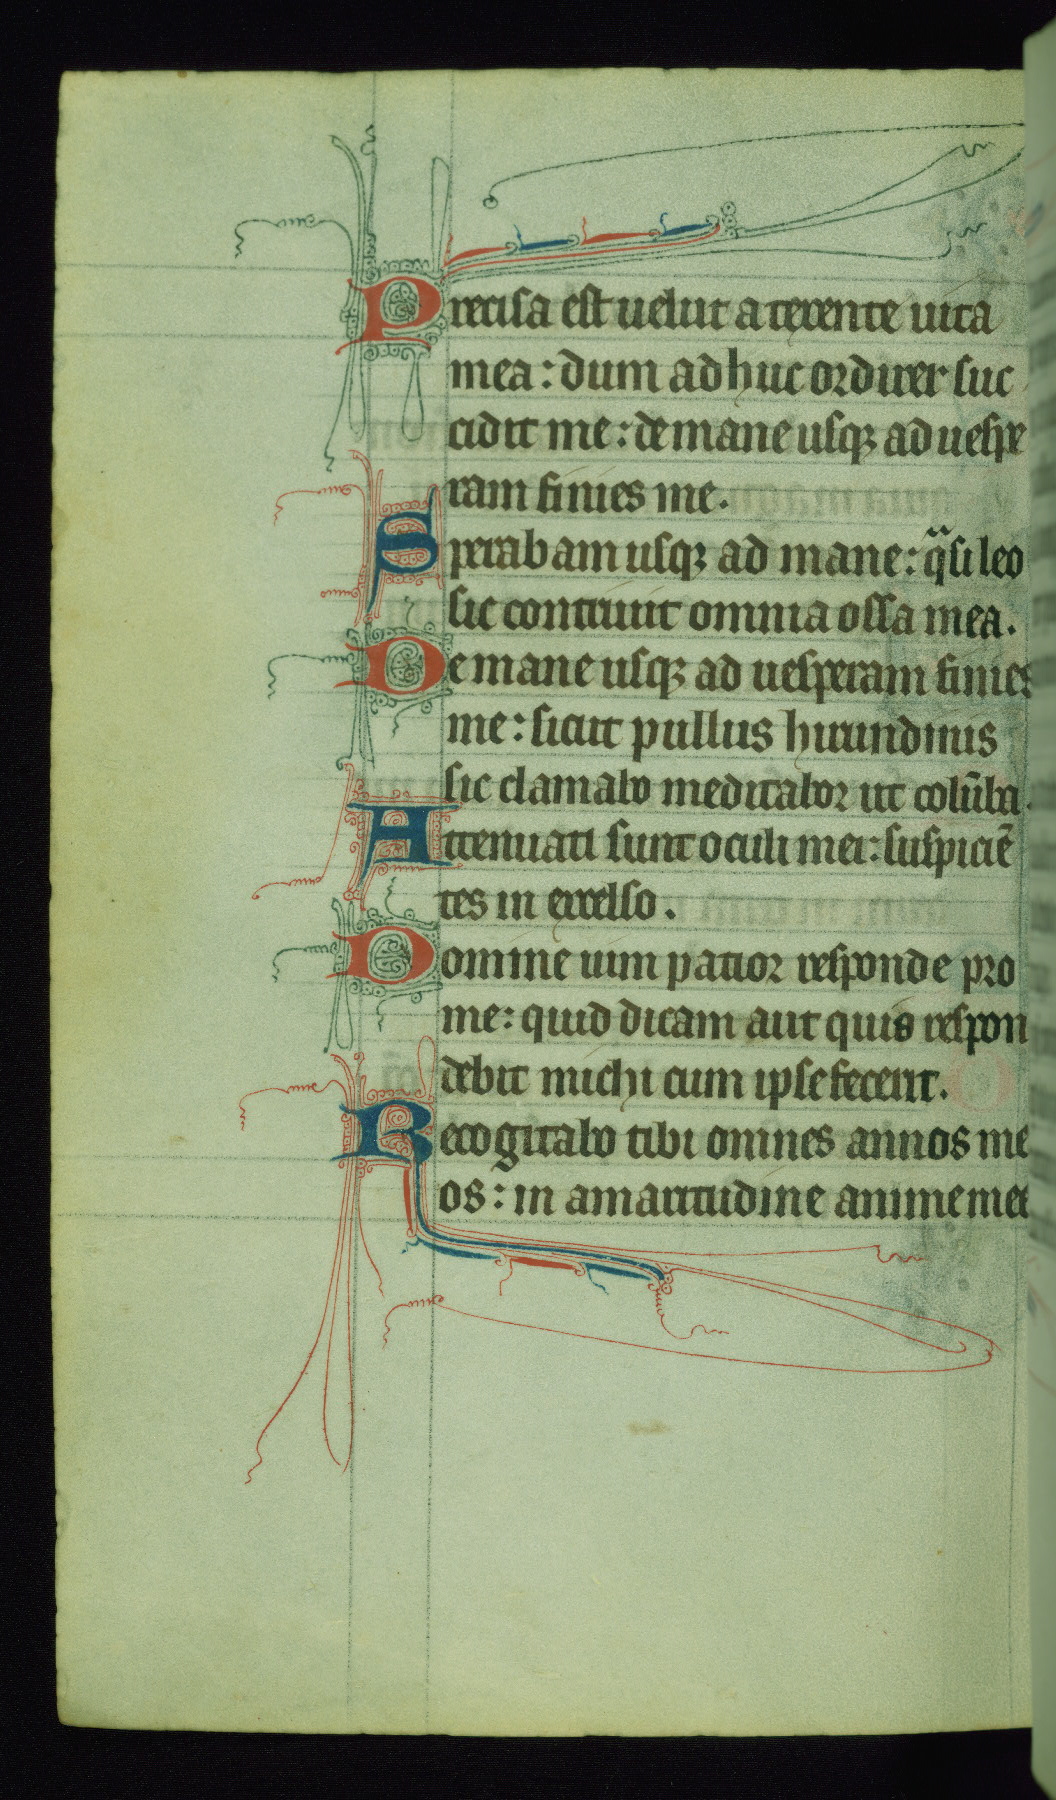 Precisa est uelut a texente uita
mea: dum adhuc ordirer suc
cidit me: de mane usqꝫ ad uespe
ram finies me.
Sperabam usqꝫ ad mane: qͣsi leo
sic contriuit omnia ossa mea.
De mane usqꝫ ad uesperam finies
me: sicut pullus hirundinis
sic clamabo meditabor ut colūba.
Attenuati sunt oculi mei: suspiciē
tes in excelso.
Domine uim patior responde pro
me: quid dicam aut quis respon
debit michi cum ipse fecerit.
Recogitabo tibi omnes annos me
os: in amaritudine anime mee